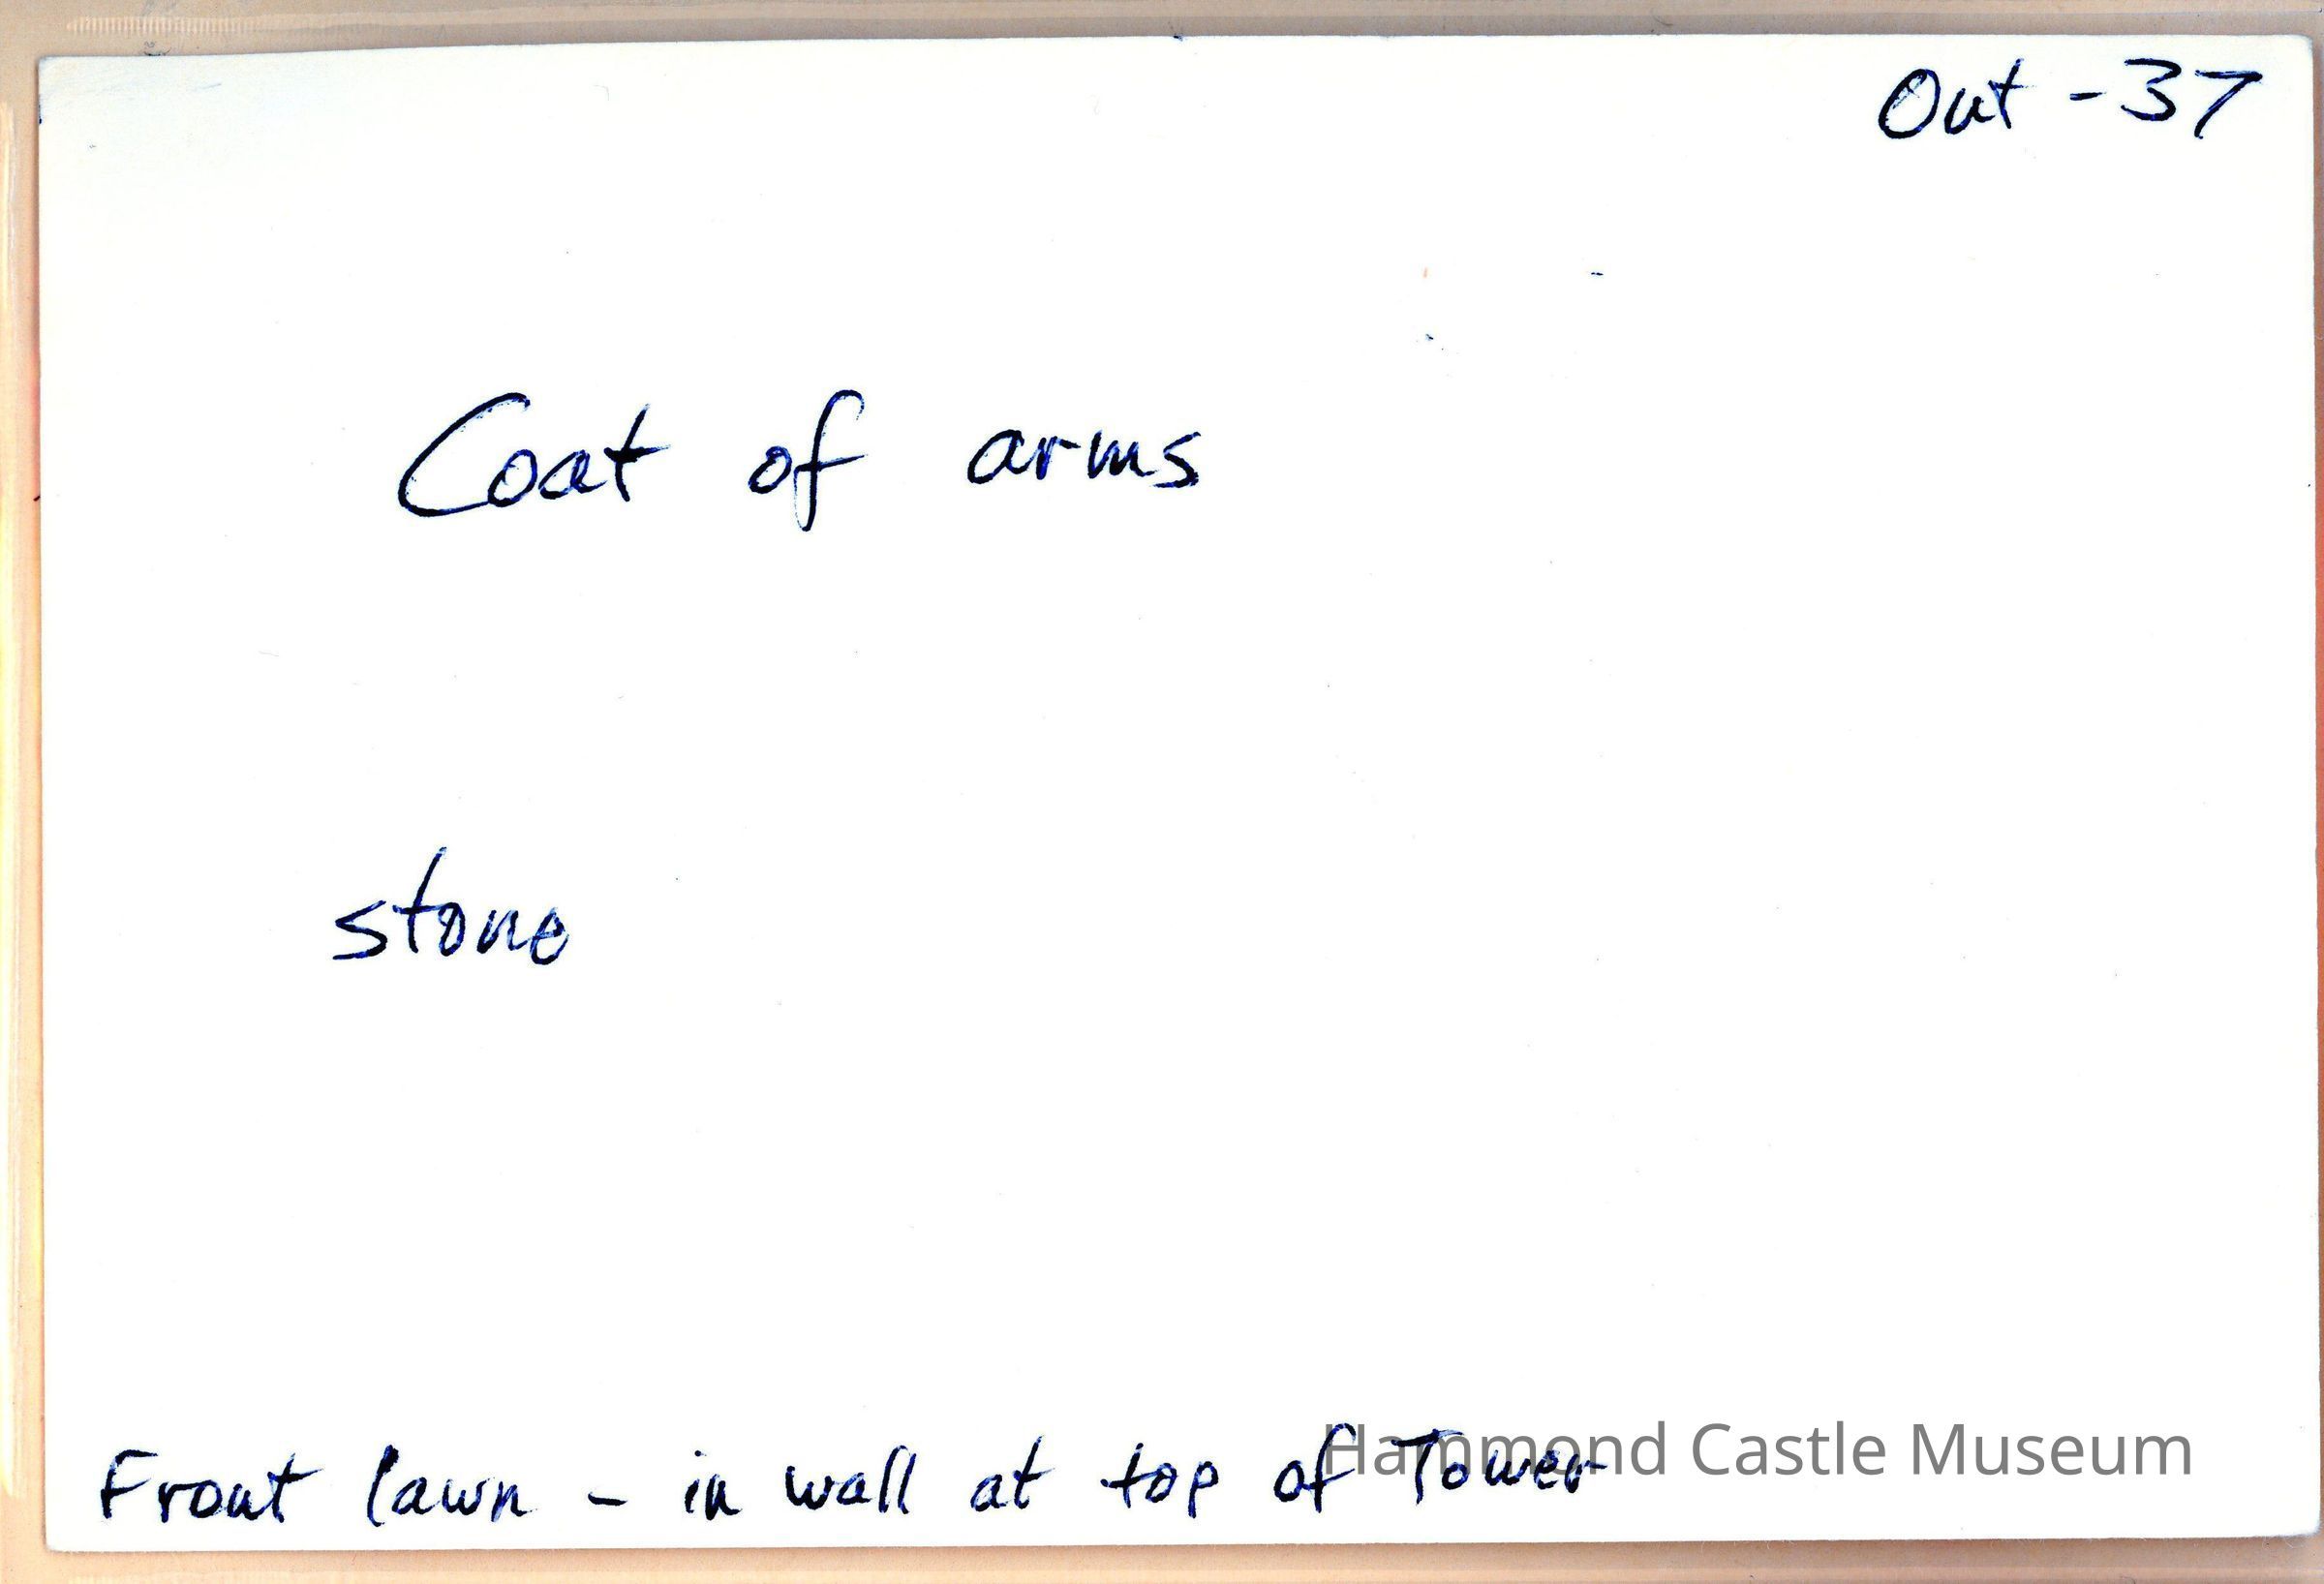 Out - 37
Coat of arms
stone
Front lawn - in wall at top of Tower
Hammond Castle Museum